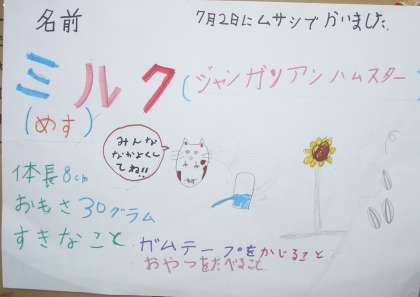 名前
7月2日にムサシでかいました。
ミルク(ジャンガリアンハムスター)
(めす)
みんな
なかよくし
てね!!
体長8cm
おもさ30グラム
すきなこと ガムテープをかじること
おやつをたべること